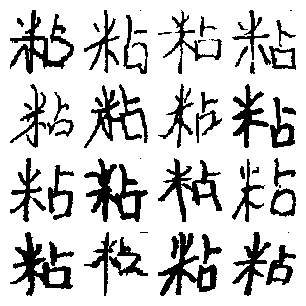 粘粘粘粘
粘粘粘粘
粘粘粘粘
粘粘粘粘